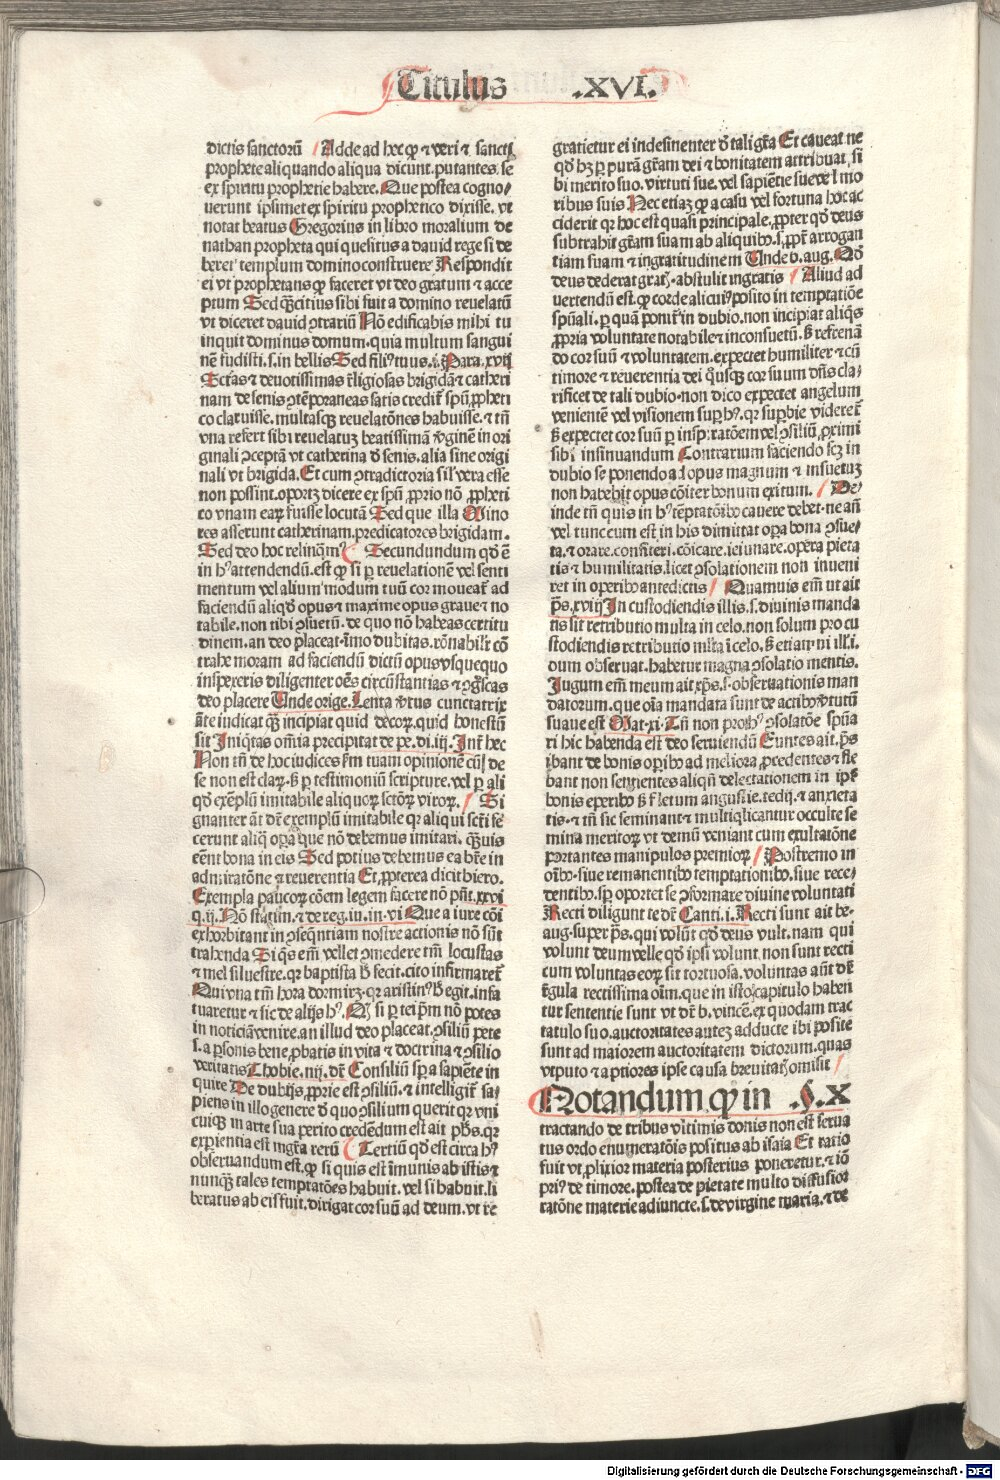 Titulus .XVI.
dictis sanctorū Adde ad hoc ꝙ ⁊ veri ⁊ sancti
prophete aliquando aliqua dicunt. putantes. se
ex spiritu prophetie habere. Que postea cogno⸗
uerunt ipsimet ex spiritu prophetico dixisse. vt
notat beatus Gregorius in libro moralium de
nathan propheta qui quesitus a dauid rege si de
beret templum domino construere Respondit
ei vt prophetans ꝙ faceret vt deo gratum ⁊ acce
ptum Sed qꝫcitius sibi fuit a domino reuelatū
vt diceret dauid ꝯtrariū Nō edificabis mihi tu
inquit dominus domum. quia multum sangui
nē fudisti. s. in bellis Sed filiꝰ tuus. i. Para. xvij
⁊ deuotissimas religiosas brigidā ⁊ catheri
nam de senis ꝯtēporaneas satis credit̄ spū ꝓpheti
co claruisse. multasqꝫ reuelatōnes habuisse. ⁊ tn̄
vna refert sibi reuelatuꝫ beatissimā v̄ginē in ori
ginali ꝯceptā vt catherina d̄ senis. alia sine origi
nali vt brigida. Et cum ꝯtradictoria sil' vera esse
non possint. oportꝫ dicere ex spū ꝓprio nō ꝓpheti
co vnam earꝝ fuisse locutā Sed que illa Mino
res asserunt catherinam. predicatores brigidam.
Sed deo hoc relinqm̄ꝰ Secundundum qd̄ ē
in hꝰ attendendū. est ꝙ si ꝑ reuelationē vel senti
mentum vel alium modum tuū cor moueat̄ ad
faciendū aliqd̄ opus ⁊ maxime opus graue ⁊ no
tabile. non tibi ꝯsuetū. de quo nō habeas certitu
dinem. an deo placeat. imo dubitas. rōnabilr̄ cō
trahe moram ad faciendū dictū opus vsquequo
inspexeris diligenter oēs circūstantias ⁊
deo placere Unde orige. Lenta v̄tus cunctatrix
ān̄te indicat qꝫ incipiat quid decorꝝ. quid honestū
sit Iniqtas om̄ia precipitat de pe. di. iij. Int̄ hec
Non tn̄ de hoc iudices s̄m tuam opinionē cū de
se non est clarꝝ. sꝫ ꝑ testimoniū scripture. vel ꝑ ali
qd̄ exēplū imitabile aliquorꝝ sctōrꝝ virorꝝ. Si
gnanter aūt dr̄ exemplū imitabile qꝛ aliqui scti fe
cerunt aliq̄ oꝑa que nō debemus imitari. qꝫuis
eēnt bona in eis Sed potius debemus ea hr̄e in
admiratōne ⁊ reuerentia Et ꝓpterea dicit hiero.
Exempla paucorꝝ cōem legem facere nō pn̄t. xxvi
q. ij. Nō statim. ⁊ de reg. iu. in. vi Que a iure cōi
exhorbitant in ꝯseqntiam nostre actionis nō sūt
trahenda Si qs em̄ vellet ꝯmedere tm̄ locustas
⁊ mel siluestre. qꝛ baptista h̄ fecit. cito infirmaret̄
Qui vna tm̄ hora dormirꝫ. qꝛ arsenius h̄ egit. infa
tuaretur ⁊ sic de alijs hꝰ. Qꝙ si ꝑ teip̄m nō potes
in noticiā venire. an illud deo placeat. ꝯsiliū pete
s. a ꝑsonis bene ꝓbatis in vita ⁊ doctrina ⁊ ꝯsilio
veritatis Thobie. iiij. dr̄ Consiliū sꝑ a sapiēte in
quire De dubijs ꝓprie est ꝯsiliū. ⁊ intelligit̄ sa⸗
piens in illo genere d̄ quo ꝯsilium querit qꝛ vni
cuiqꝫ in arte sua perito credēdum est ait ph̄s. qꝛ
expientia est mgr̄a rerū Tertiū qd̄ est circa hꝰ
obseruandum est. ꝙ si quis est īmunis ab istis ⁊
nunqꝫ tales temptatōes habuit. vel si habuit. li
beratus ab eis fuit. dirigat cor suū ad deum. vt re
gratietur ei indesinenter d̄ tali gr̄a Et caueat ne
qd̄ hꝫ ꝑ purā gr̄am dei ⁊ bonitatem attribuat. si
bi merito suo. virtuti sue. vel sapiētie sue vel mo
ribus suis Nec etiaꝫ ꝙ a casu vel fortuna hoc ac
ciderit qꝛ hoc est quasi principale. ꝓpter qd̄ deus
subtrahit gr̄am suam ab aliquibꝰ. s. ꝓpt̄ arrogan
tiam suam ⁊ ingratitudinem Unde b. aug. Qd̄
deus dederat gratꝭ. abstulit ingratis Aliud ad
uertendū est. ꝙ corde alicuiꝰ posito in temptatiōe
spūali. ꝑ quā ponit̄ in dubio. non incipiat aliqs
ꝓpria voluntate notabile ⁊ inconsuetū. sꝫ refrenā
do cor suū ⁊ voluntatem. expectet humiliter ⁊ cū
timore ⁊ reuerentia dei qusqꝫ cor suum dn̄s cla⸗
rificet de tali dubio. non dico expectet angelum
venientē vel visionem suꝑ hꝰ. qꝛ suꝑbie videret̄
sꝫ expectet cor suū ꝑ inspiratōem vel ꝯsiliū ꝓximi
sibi insinuandum Contrarium faciendo scꝫ in
dubio se ponendo ad opus magnum ⁊ insuetuꝫ
non habebit opus cōiter bonum exitum. De⸗
inde tn̄ quis in hꝰ tēptatōibꝰ cauere debet. ne an̄
vel tunc cum est in his dimittat oꝑa bona ꝯsue⸗
ta. ⁊ orare. confiteri. cōicare. ieiunare. opera pieta
tis ⁊ humilitatis. licet ꝯsolationem non inueni
ret in operibꝰ antedictis Quamuis em̄ vt ait
ps̄. xviij In custodiendis illis. s. diuinis manda
tis sit retributio multa in celo. non solum pro cu
stodiendis retributio mlta ī celo. sꝫ etiam in ill' i.
dum obseruat. habetur magna ꝯsolatio mentis.
Iugum em̄ meum ait xps̄. s. obseruationis man
datorum. que oīa mandata sunt de actibꝰ v̄tutū
suaue est Mat. xi. Tn̄ non proptꝰ ꝯsolatōe spūa
ri hic habenda est deo seruiendū Euntes ait. ps̄
ibant de bonis oꝑibꝰ ad meliora ꝓcedentes ⁊ fle
bant non sentientes aliqn̄ delectationem in ip̄s
bonis operibꝰ sꝫ fletum angustie. tedij. ⁊ anxieta
tis. ⁊ tn̄ sic seminant ⁊ multiplicantur occulte se
mina meritorꝝ vt demū veniant cum exultatōne
portantes manipulos premiorꝝ Postremo in
oībꝰ. siue remanentibꝰ temptationibꝰ. siue rece⸗
dentibꝰ. sꝑ oportet se ꝯformare diuine voluntati
Recti diligunt te dr̄ Canti. i. Recti sunt ait be⸗
aug. super ps̄. qui volūt qd̄ deus vult. nam qui
volunt deum velle qd̄ ipsi volunt. non sunt recti
cum voluntas eorꝝ sit tortuosa. voluntas aūt dei
regula rectissima oīm. que in isto capitulo haben
tur sententie sunt vt dr̄ b. vincē. ex quodam trac
tatulo suo. auctoritates auteꝫ adducte ibi posite
sunt ad maiorem auctoritatem dictorum. quas
vt puto ⁊ aptiores ipse causa breuitatꝭ omisit
Notandum ꝙ in .§. X
tractando de tribus vltimis donis non est serua
tus ordo enumeratōis positus ab isaia Et ratio
fuit vt ꝓlixior materia posterius poneretur. ⁊ iō
priꝰ de timore. postea de pietate multo diffusior
ratōne materie adiuncte. s. de virgine maria. ⁊ de
Digitalisierung gefördert durch die Deutsche Forschungsgemeinschaft - DFG